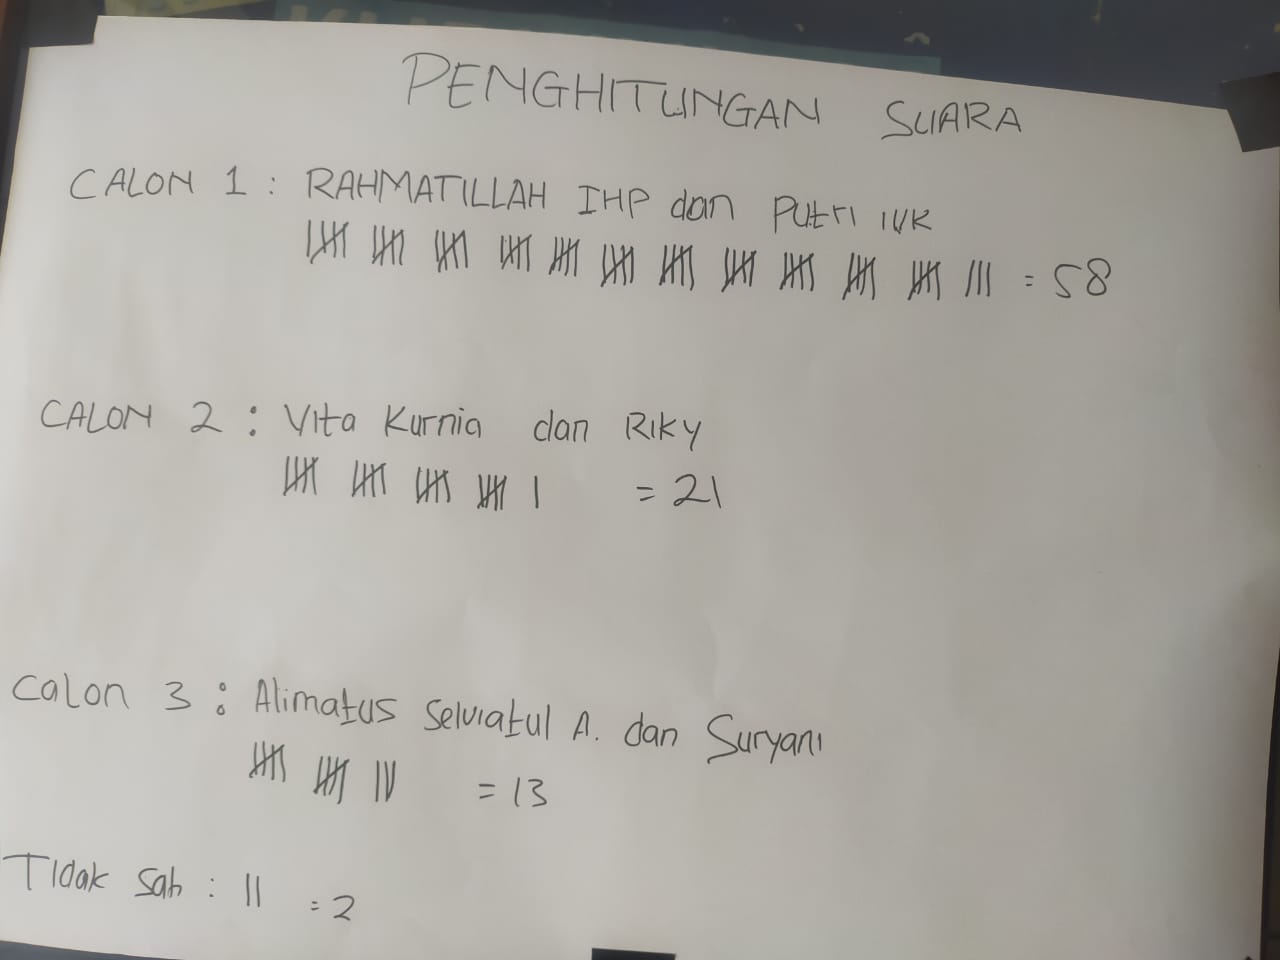 PENGHITUNGAN SUARA
CALON 1 : RAHMATILLAH IHP dan Putri IVK
= 58
CALON 2 : Vita Kurnia dan Riky
= 21
Calon 3 : Alimatus Selviatul A. dan Suryani
= 13
Tidak Sah : II = 2